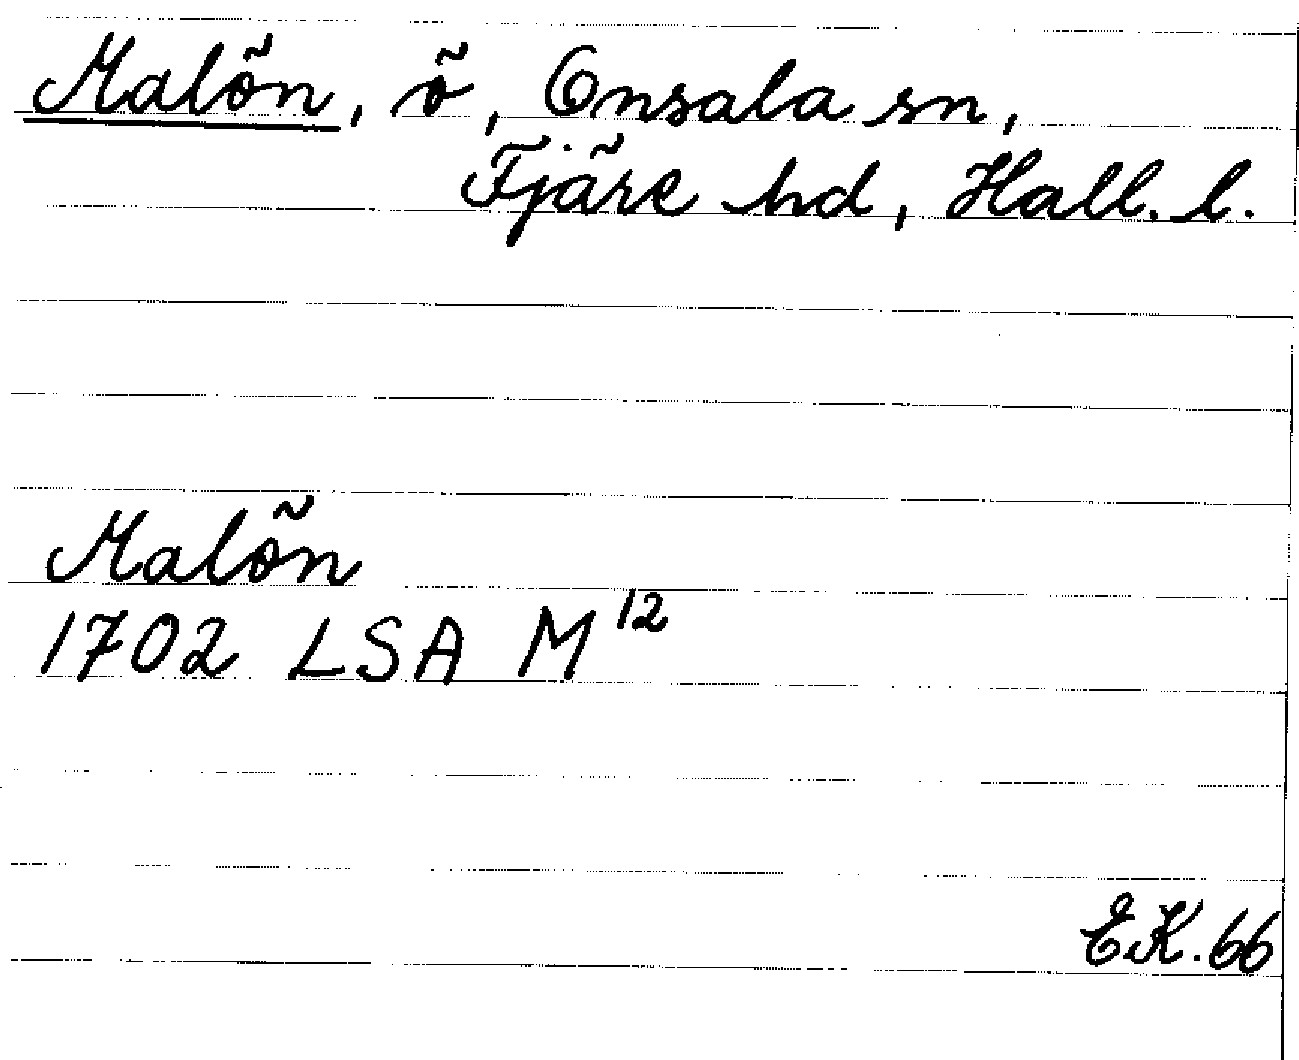 Malön, ö, Onsala sn,
Fjäre hd, Hall. l.
Malön
1702 LSA M¹²
E.K. 66